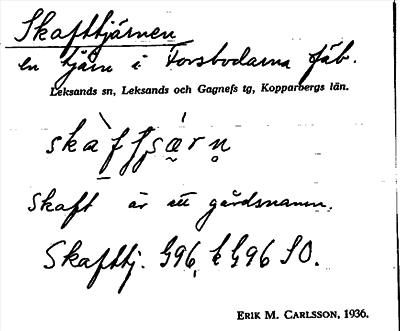 Skafttjärnen
en tjärn i Torsbodarna fäb.
Leksands sn, Leksands och Gagnefs tg, Kopparbergs län.
skàf
Skaft är ett gårdsnamn.
Skafttj. G96, k G96 SO.
ERIK M. CARLSSON, 1936.